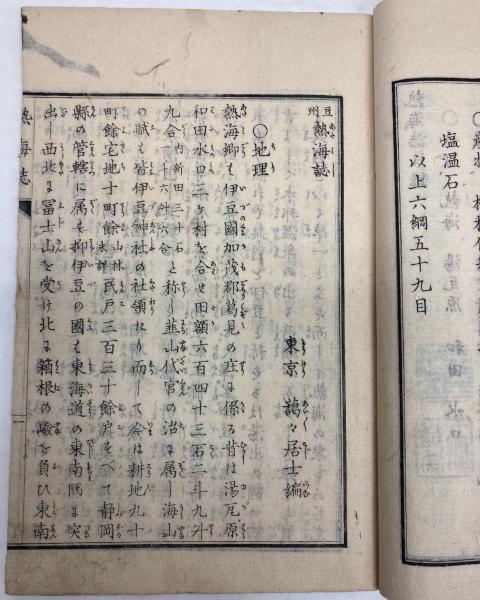 塩温石
以上六綱五十九目
豆州 熱海誌
東京 藹々居士編
○地理
熱海郷は伊豆國加茂郡葛見の庄に係る昔は湯瓦原
和田水口三ケ村を合せ田額六百四十三石二斗九升
九合 内新田三十石 と称り韮山代官の治に属し海山
の賦は皆伊豆神社の社領たり而して今は耕地九十
町餘宅地十町餘 山林 民戸三百三十餘すべて静岡
縣の管轄に属す抑伊豆の國は東海道の東南隅に突
出し西北に冨士山を受け北に箱根の嶮を負ひ東南
熱海誌